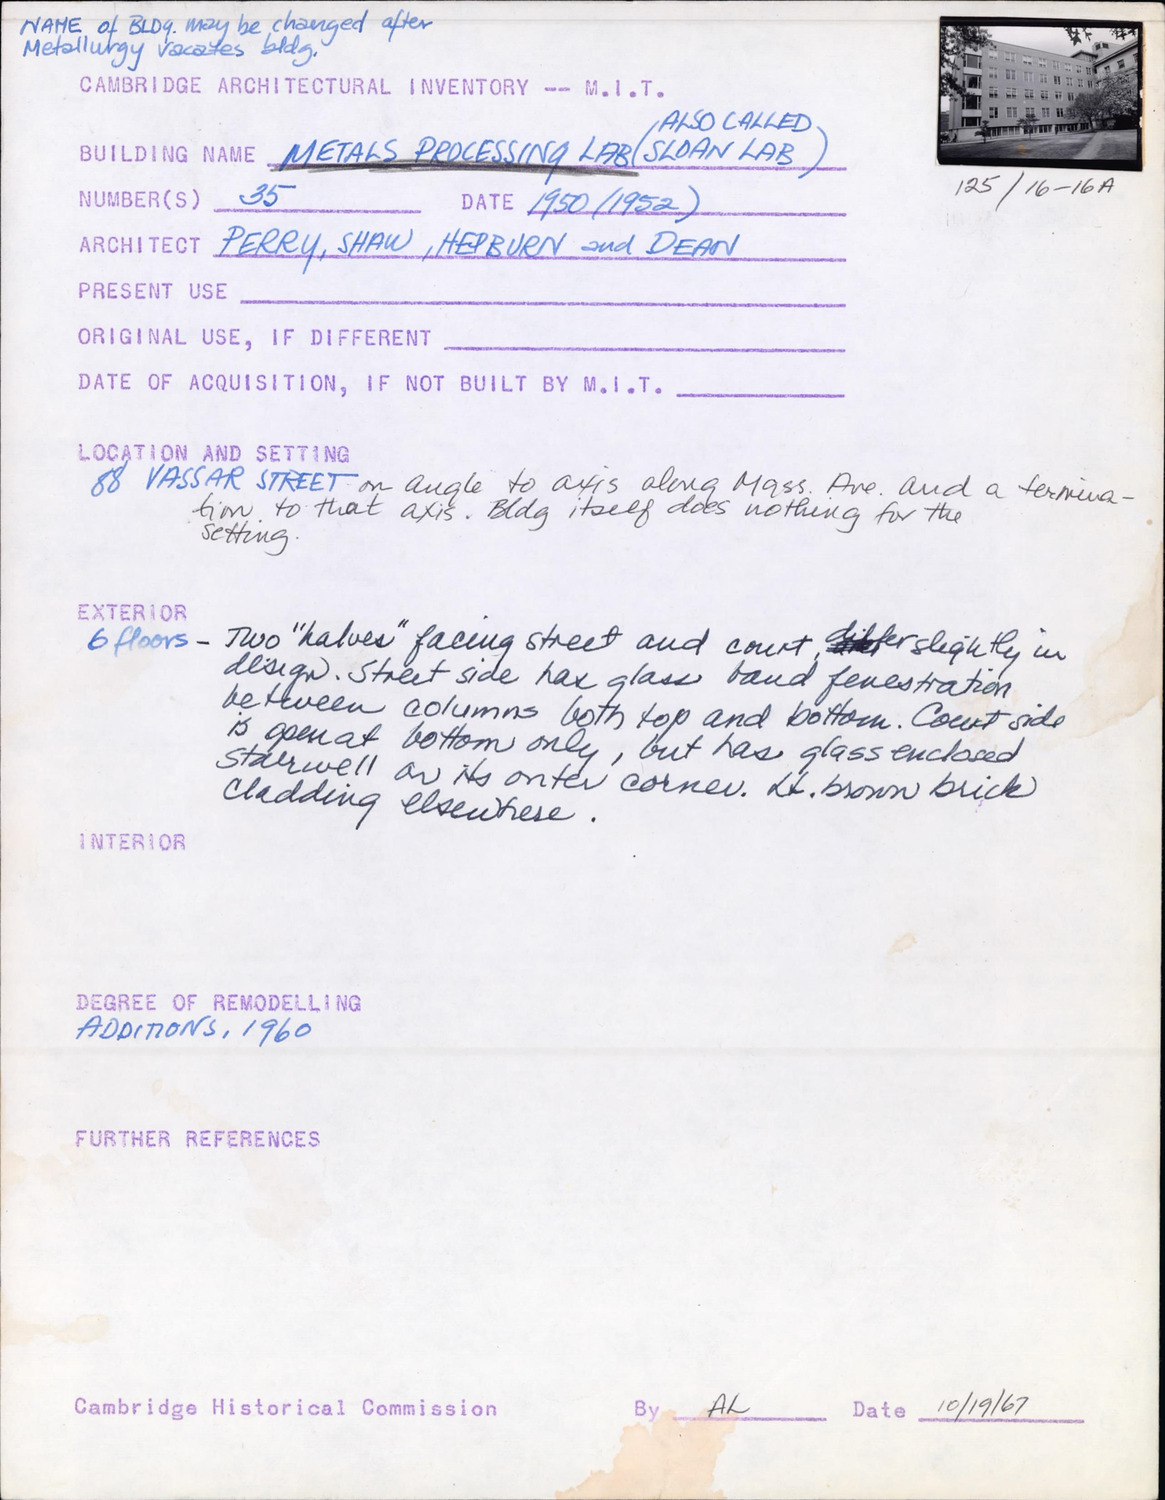 NAME of BLDg. may be changed after
Metallurgy vacates bldg.
CAMBRIDGE ARCHITECTURAL INVENTORY -- M.I.T.
BUILDING NAME METALS PROCESSING LAB (ALSO CALLED SLOAN LAB)
125/16-16A
NUMBER(S) 35 DATE 1950 (1952)
ARCHITECT PERRY, SHAW, HEPBURN and DEAN
PRESENT USE
ORIGINAL USE, IF DIFFERENT
DATE OF ACQUISITION, IF NOT BUILT BY M.I.T.
LOCATION AND SETTING
88 VASSAR STREET on angle to axis along Mass. Ave. and a termina-
tion to that axis. Bldg itself does nothing for the
setting.
EXTERIOR
6 floors - Two "halves" facing street and court, differ slightly in
design. Street side has glass band fenestration
between columns both top and bottom. Court side
is open at bottom only, but has glass enclosed
stairwell on its outer corner. Lt. brown brick
cladding elsewhere.
INTERIOR
DEGREE OF REMODELLING
ADDITIONS, 1960
FURTHER REFERENCES
Cambridge Historical Commission By AL Date 10/19/67